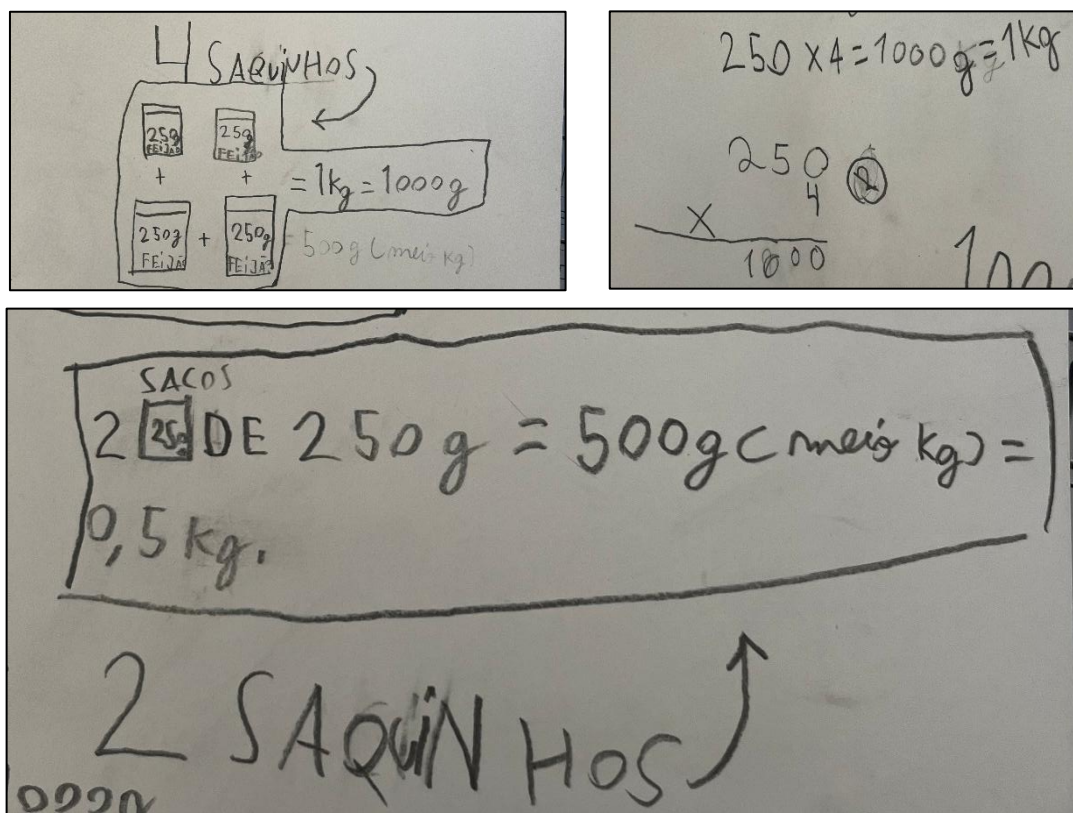 4 SAQUINHOS
25g FEIJÃO
25g FEIJÃO
+ +
= 1kg = 1000g
250g FEIJÃO + 250g FEIJÃO = 500g (meio kg)
250 x 4 = 1000g = 1kg
250
4 2
X
1000
100
SACOS
2 25g DE 250g = 500g (meio kg) =
0,5 kg.
2 SAQUINHOS